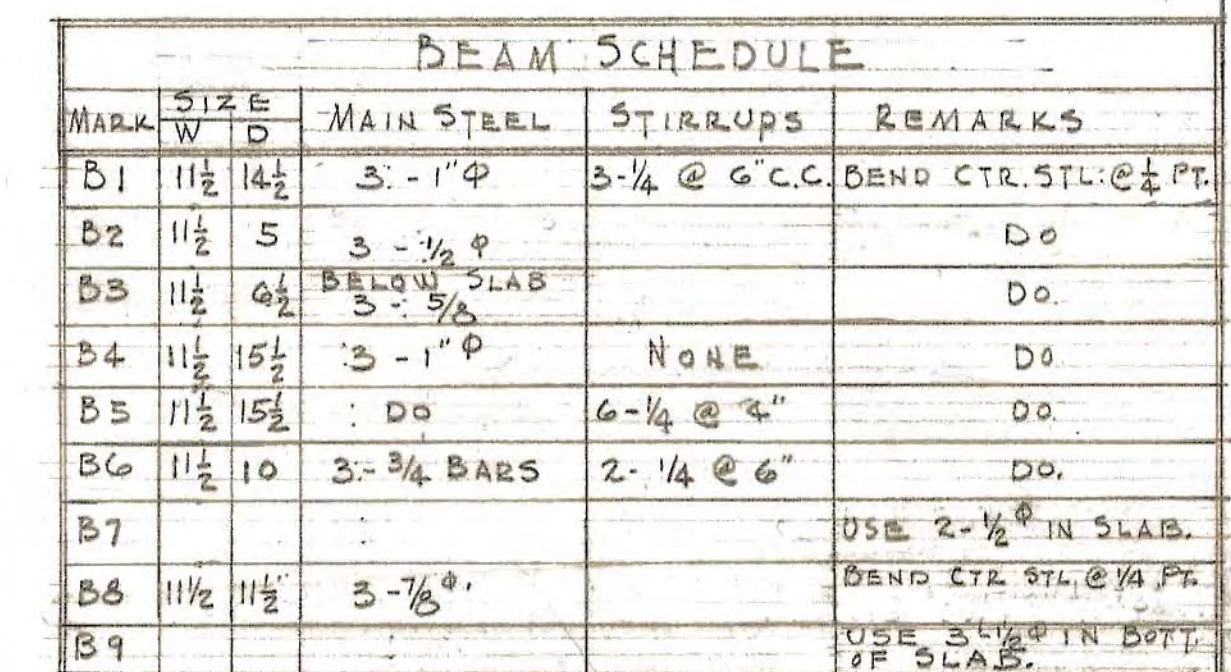 BEAM SCHEDULE
MARK SIZE MAIN STEEL STIRRUPS REMARKS
W D
B1 11½ 14½ 3 - 1" Φ 3-¼ @ 6" C.C. BEND CTR. STL. @ ¼ PT.
B2 11½ 5 3 - ½ Φ DO
B3 11½ 6½ BELOW SLAB DO.
3 - 5/8
B4 11½ 15½ 3 - 1" Φ NONE DO.
B5 11½ 15½ DO 6-¼ @ 4" DO.
B6 11½ 10 3 - ¾ BARS 2 - ¼ @ 6" DO.
B7 USE 2-½ Φ IN SLAB.
B8 11½ 11½ 3 - ⅞ Φ. BEND CTR STL @ ¼ PT.
B9 USE 3-½ Φ IN BOTT.
OF SLAB.